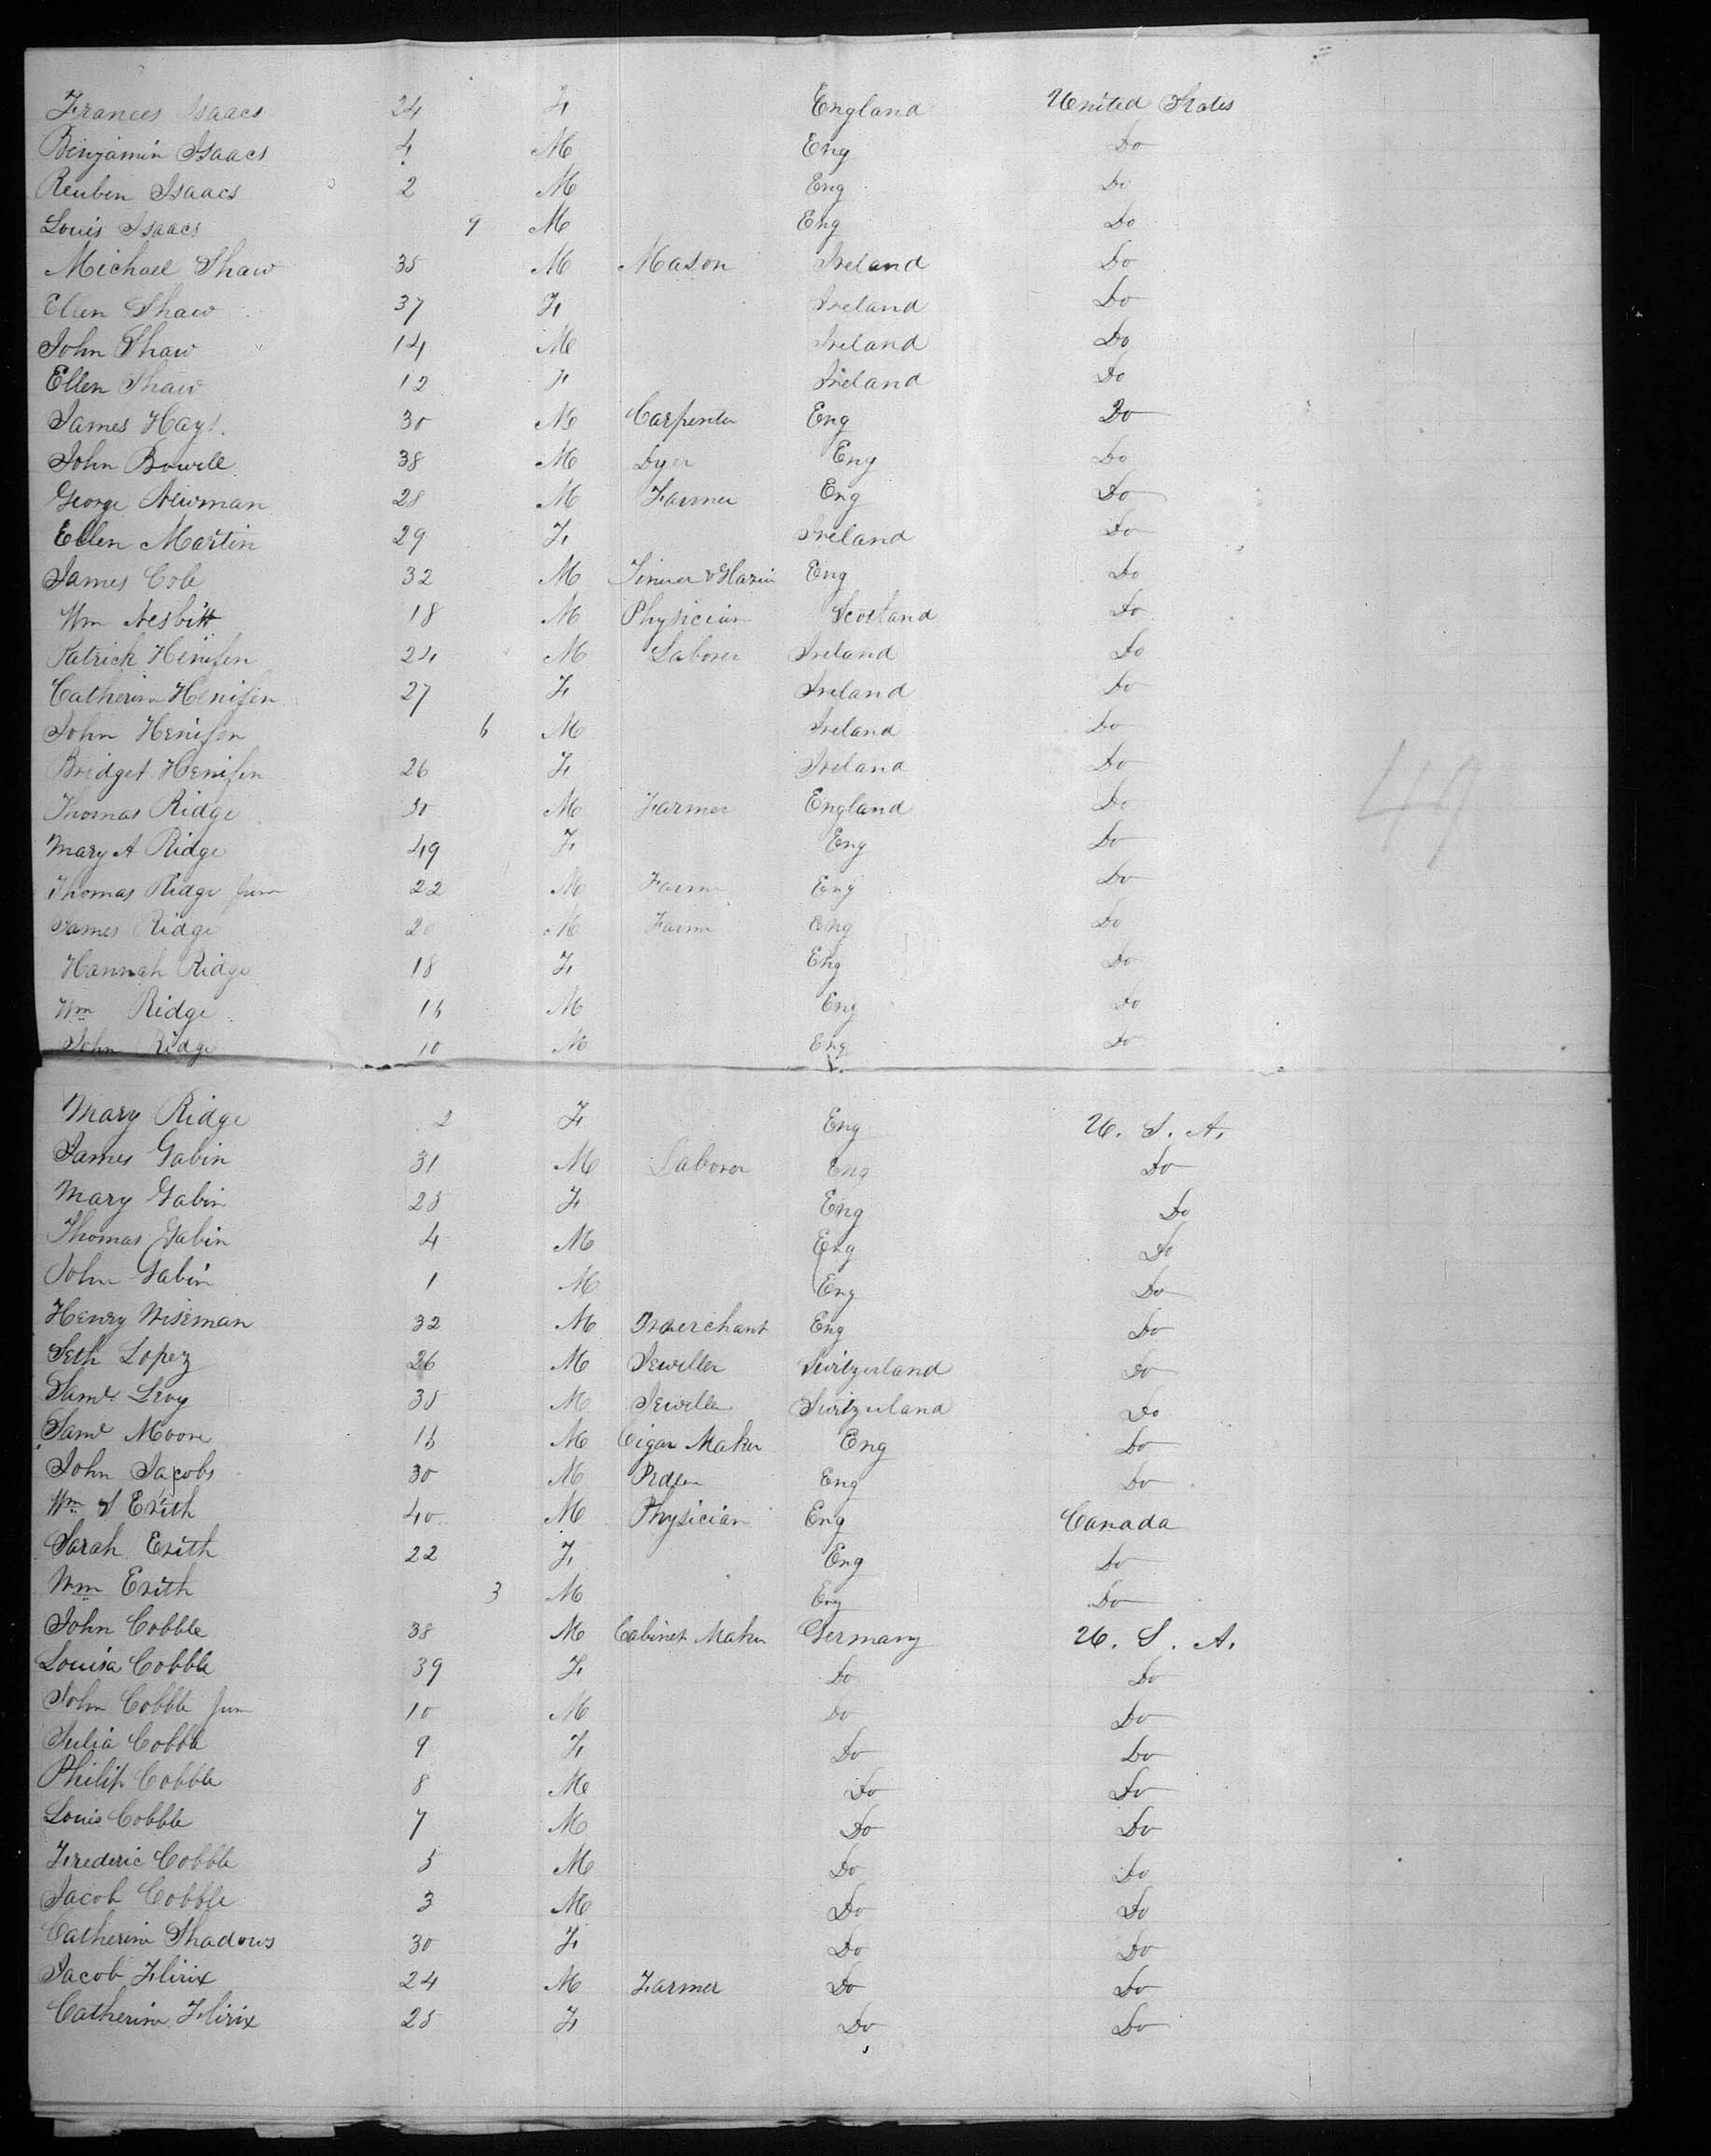 Frances Isaacs 24 F England United States
Benjamin Isaacs 4 M Eng Do
Reubin Isaacs 2 M Eng Do
Louis Isaacs 9 M Eng Do
Michael Shaw 35 M Mason Ireland Do
Ellen Shaw 37 F Ireland Do
John Shaw 14 M Ireland Do
Ellen Shaw 12 F Ireland Do
James Hays 30 M Carpenter Eng Do
John Bowell 38 M Dyer Eng Do
George Newman 28 M Farmer Eng Do
Ellen Martin 29 F Ireland Do
James Cole 32 M Eng Do
Wm Nesbitt 18 M Physician Scotland Do
Patrick Henifen 24 M Laborer Ireland Do
Catherine Henifen 27 F Ireland Do
John Henifen 6 M Ireland Do
Bridget Henifen 26 F Ireland Do
Thomas Ridge 50 M Farmer England Do
49
Mary A Ridge 49 F Eng Do
Thomas Ridge Jun 22 M Farmr Eng Do
James Ridge 20 M Farmr Eng Do
Hannah Ridge 18 F Eng Do
Wm Ridge 16 M Eng Do
John Ridge 10 M Eng Do
Mary Ridge 2 F Eng U. S. A.
James Gabin 31 M Laborer Eng Do
Mary Gabin 25 F Eng Do
Thomas Gabin 4 M Eng Do
John Gabin 1 M Eng Do
Henry Wiseman 32 M Merchant Eng Do
Seth Lopez 26 M Jeweller Switzerland Do
Saml Levy 35 M Jeweller Switzerland Do
Saml Moore 16 M Cigar Maker Eng Do
John Jacobs 30 M Pedler Eng Do
Wm S Erith 40 M Physician Eng Canada
Sarah Erith 22 F Eng Do
Wm Erith 3 M Eng Do
John Cobble 38 M Cabinet Maker Germany U. S. A.
Louisa Cobble 39 F Do Do
John Cobble Jun 10 M Do Do
Julia Cobble 9 F Do Do
Philip Cobble 8 M Do Do
Louis Cobble 7 M Do Do
Frederic Cobble 5 M Do Do
Jacob Cobble 3 M Do Do
Catherine Shadows 30 F Do Do
Jacob Flirix 24 M Farmer Do Do
Catherine Flirix 25 F Do Do